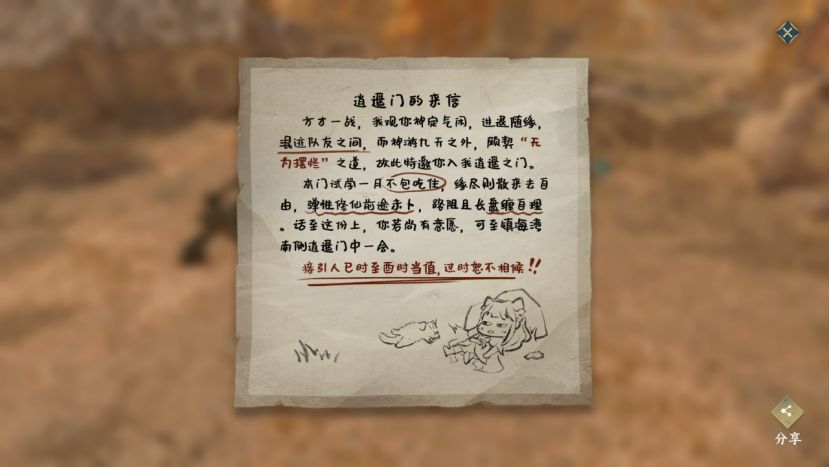 逍遥门的来信
方才一战，我观你神定气闲，进退随缘，
混迹队友之间，而神游九天之外，颇契“无
为摆烂”之道，故此特邀你入我逍遥之门。
本门试学一月不包吃住，缘尽则散来去自
由，弹性修仙前途未卜，路阻且长盘缠自理
。话至这份上，你若尚有意愿，可至镇海湾
南侧逍遥门中一会。
接引人巳时至酉时当值，过时恕不相候！！
分享